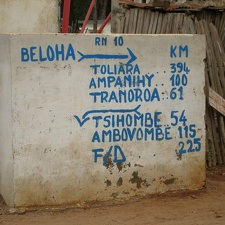 RN 10
BELOHA → KM
TOLIARA 394
AMPANIHY 100
TRANOROA 61
←
TSIHOMBE 54
AMBOVOMBE 115
F/D 225